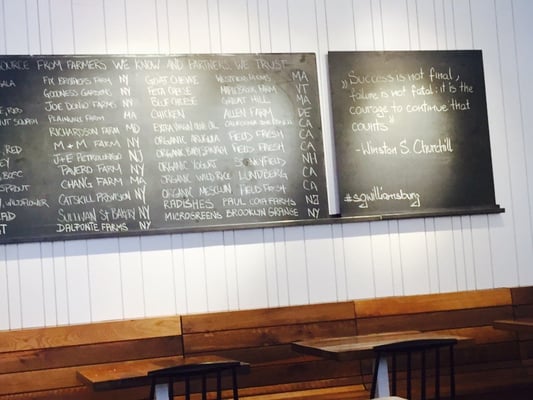 SOURCE FROM FARMERS WE KNOW AND PARTNERS WE TRUST
FIX BROTHERS FARM NY GOAT CHEVRE MA
GOODNESS GARDENS NY FETA CHEESE VT
RED JOE DONIO FARMS NY BLUE CHEESE GREAT HILL MA
PLAINVILLE FARMS MA CHICKEN ALLEN FARM DE
RICHARDSON FARM MD CA
M + M FARM NJ ORGANIC ARUGULA FIELD FRESH CA
NJ ORGANIC FIELD FRESH CA
PAVERO FARM NY ORGANIC YOGURT STONYFIELD NH
SPROUT CHANG FARM MA ORGANIC WILD RICE LUNDBERG CA
WILDFLOWER CATSKILL PROVISION NY ORGANIC MESCLUN FIELD FRESH CA
SULLIVAN ST BAKERY NY RADISHES FARMS NJ
DALPONTE FARMS NY MICROGREENS BROOKLYN GRANGE NY
"Success is not final,
failure is not fatal: it is the
courage to continue that
counts"
- Winston S. Churchill
#sgwilliamsburg